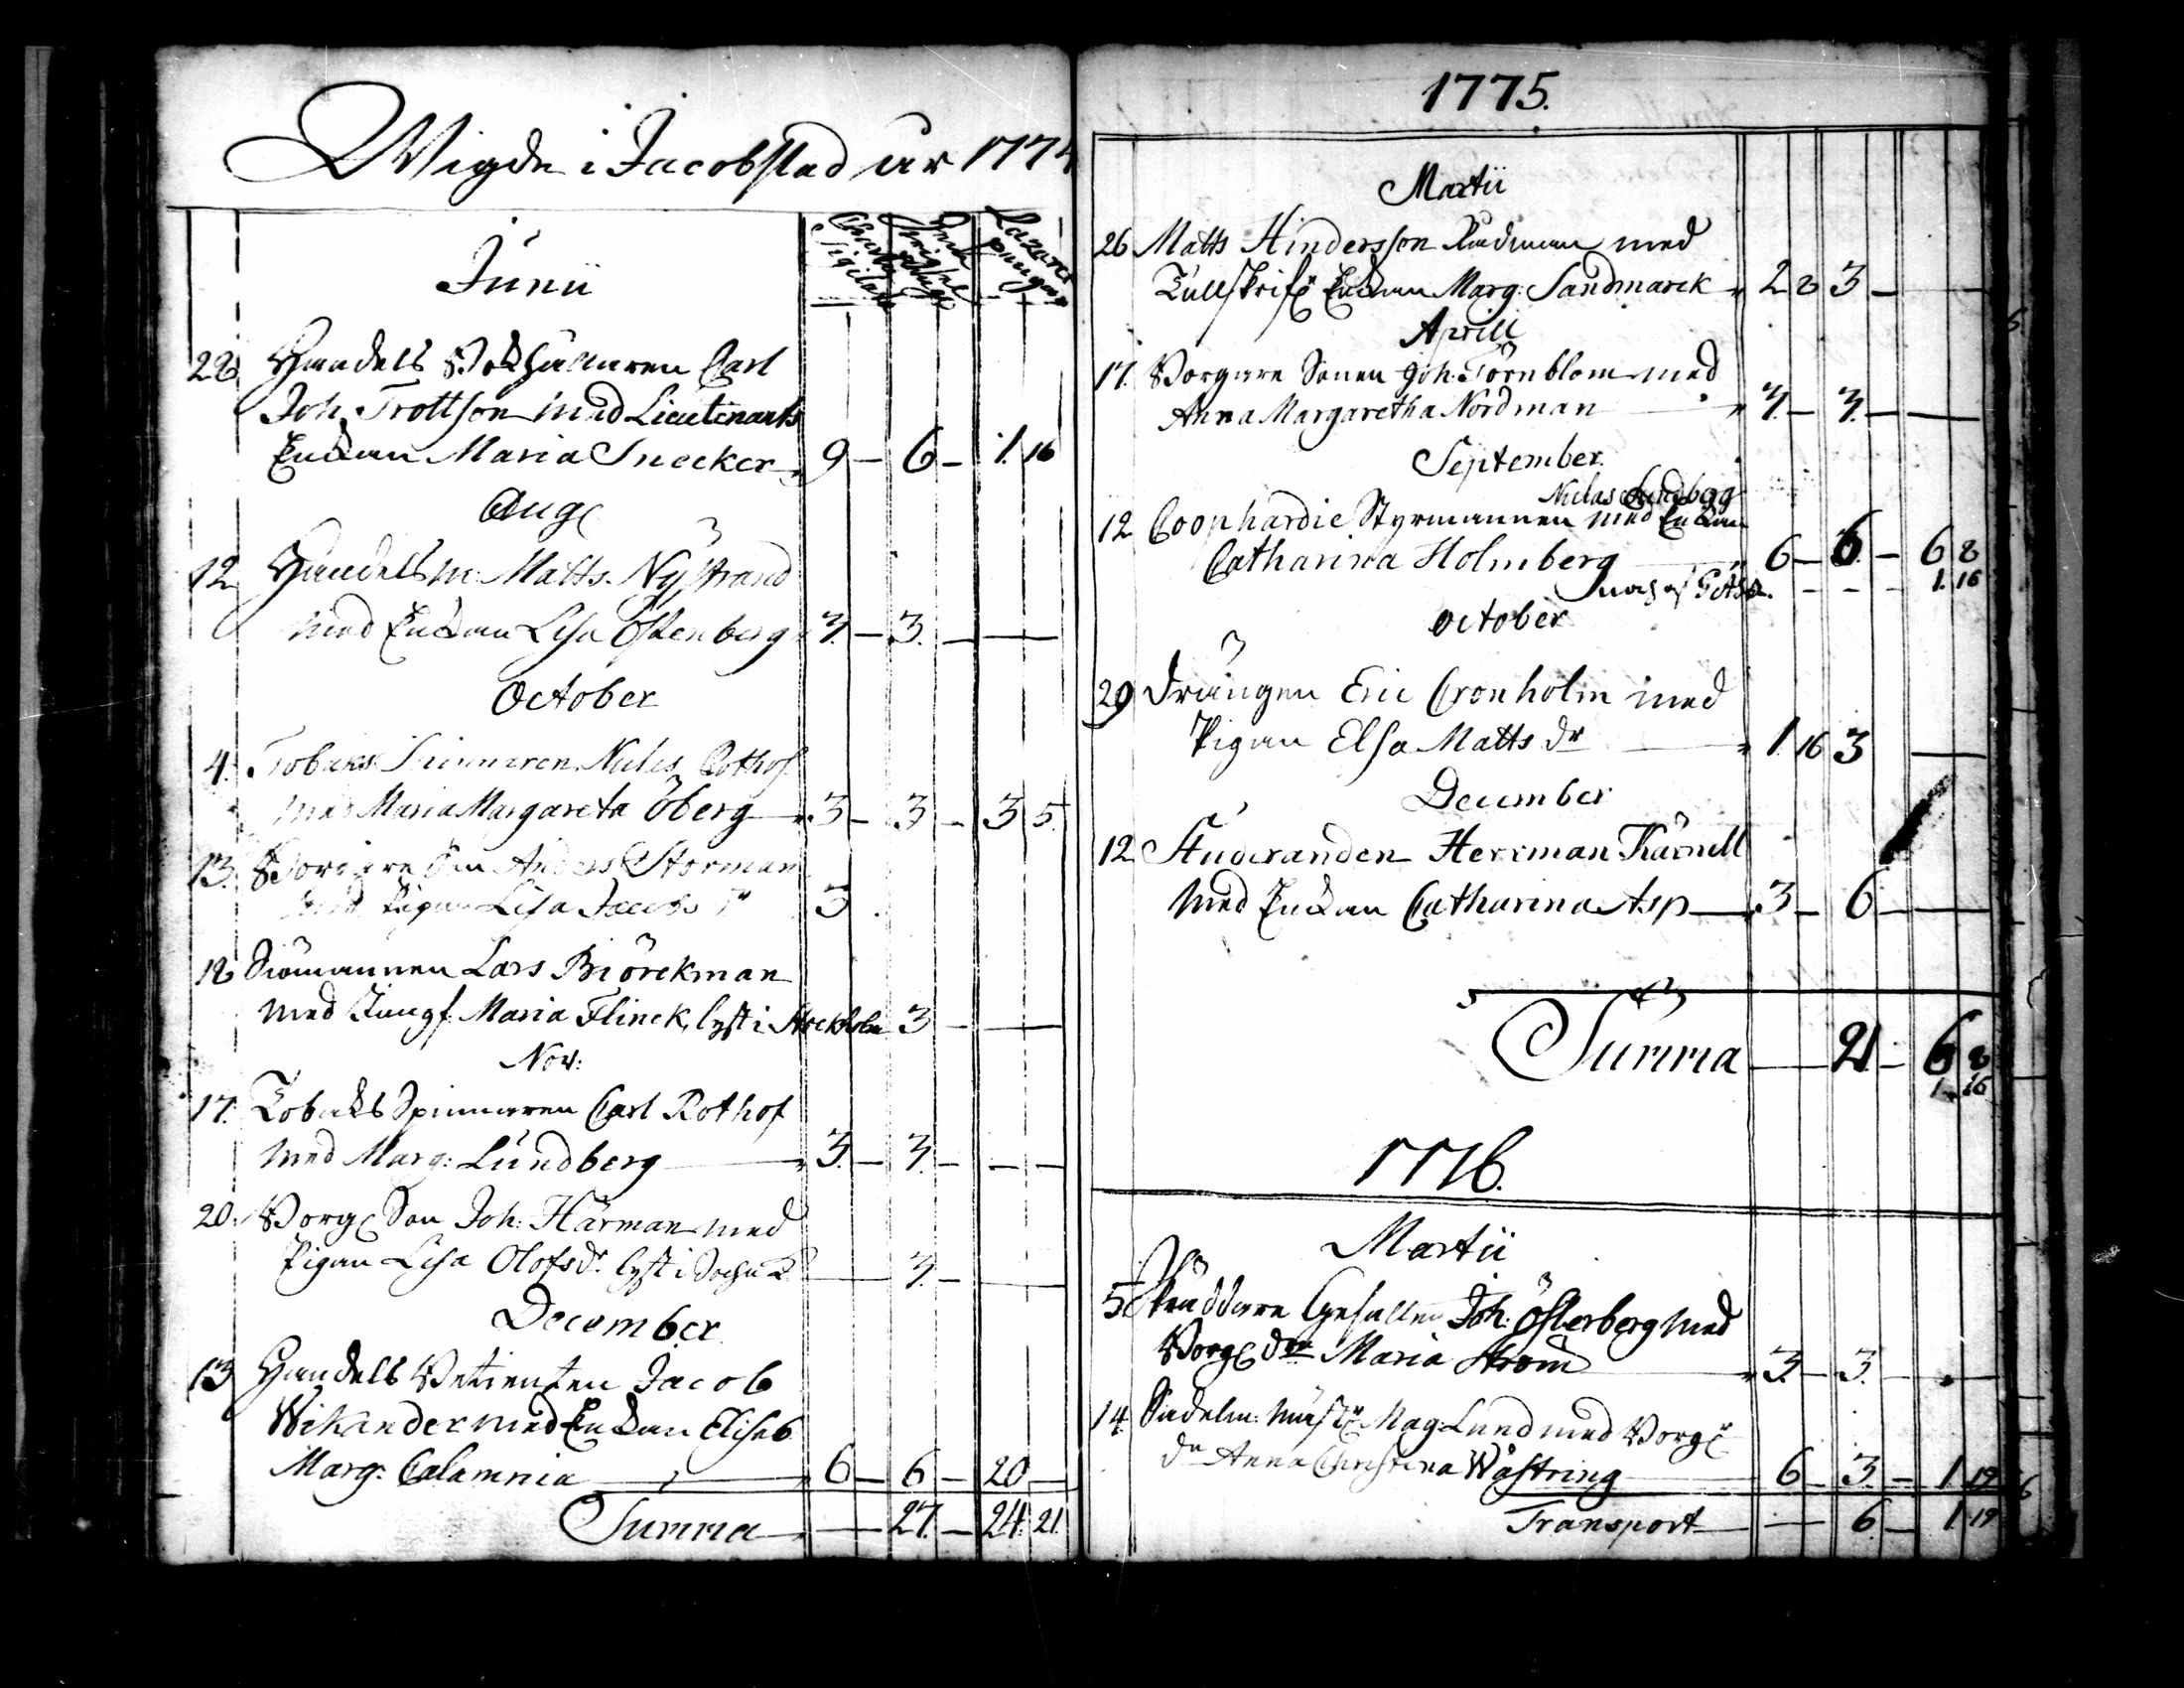 Wigde i Jacobstad år 1774
Charta Sigilata
Lazaretz pungen
Junii
22 Handels Bokhållaren Carl
Joh. Trottson med Lieutenants
Enckan Maria Snecker 9 — 6 — 1. 16
Aug
12 Handelsm: Matts Nystrand
med Enckan Lisa Östenberg 3. — 3. — —
October
4. Tobaks Spinnaren Niclas Rothof
med Maria Margareta Öberg 3 — 3 — 3 5.
13. Borgare Son Anders Storman
med Pigan Lisa Jacobs dr 3
18 Siömannen Lars Biörckman
med Jungf. Maria Flinck, lyst i Stockholm 3 — —
Nov:
17. Tobaks Spinnaren Carl Rothof
med Marg: Lundberg 3. — 3. — — —
20. Borg Son Joh: Harman med
Pigan Lisa Olofsdr. lyst i — 3. — —
December
13 Handels Betienten Jacob
Wikander med Enckan Elisab
Marg: Calamnia 6 — 6 — 20 —
Summa — 27. — 24. 21.
1775.
Martii
26 Matts Hindersson Rådman med
Tullskrif Enckan Marg: Sandmarck 2 8 3 — —
Aprill
17. Borgare Sonen Joh: Törnblom med
Anna Margaretha Nordman 3. — 3. — —
September
Niclas Lundberg
12 Coophardie Styrmannen med Enckan
Catharina Holmberg 6 — 6 — 6 8
- - - 1. 16
October
29 Drängen Eric Cronholm med
Pigan Elsa Matts dr 1. 16 3 —
December
12 Studeranden Herrman Kärnell
med Enckan Catharina Asp 3 — 6 — —
Summa — 21 — 6 8
1. 16
1776.
Martii
5. Skräddare Gesällen Joh: Österberg med
Borg dr Maria Ström 3. — 3. — —
14. Sadelm: mäst Mag: Lund med Borg
dr Anna Christina Wåstring 6 — 3. — 1. 19
Transport — 6. — 1. 19